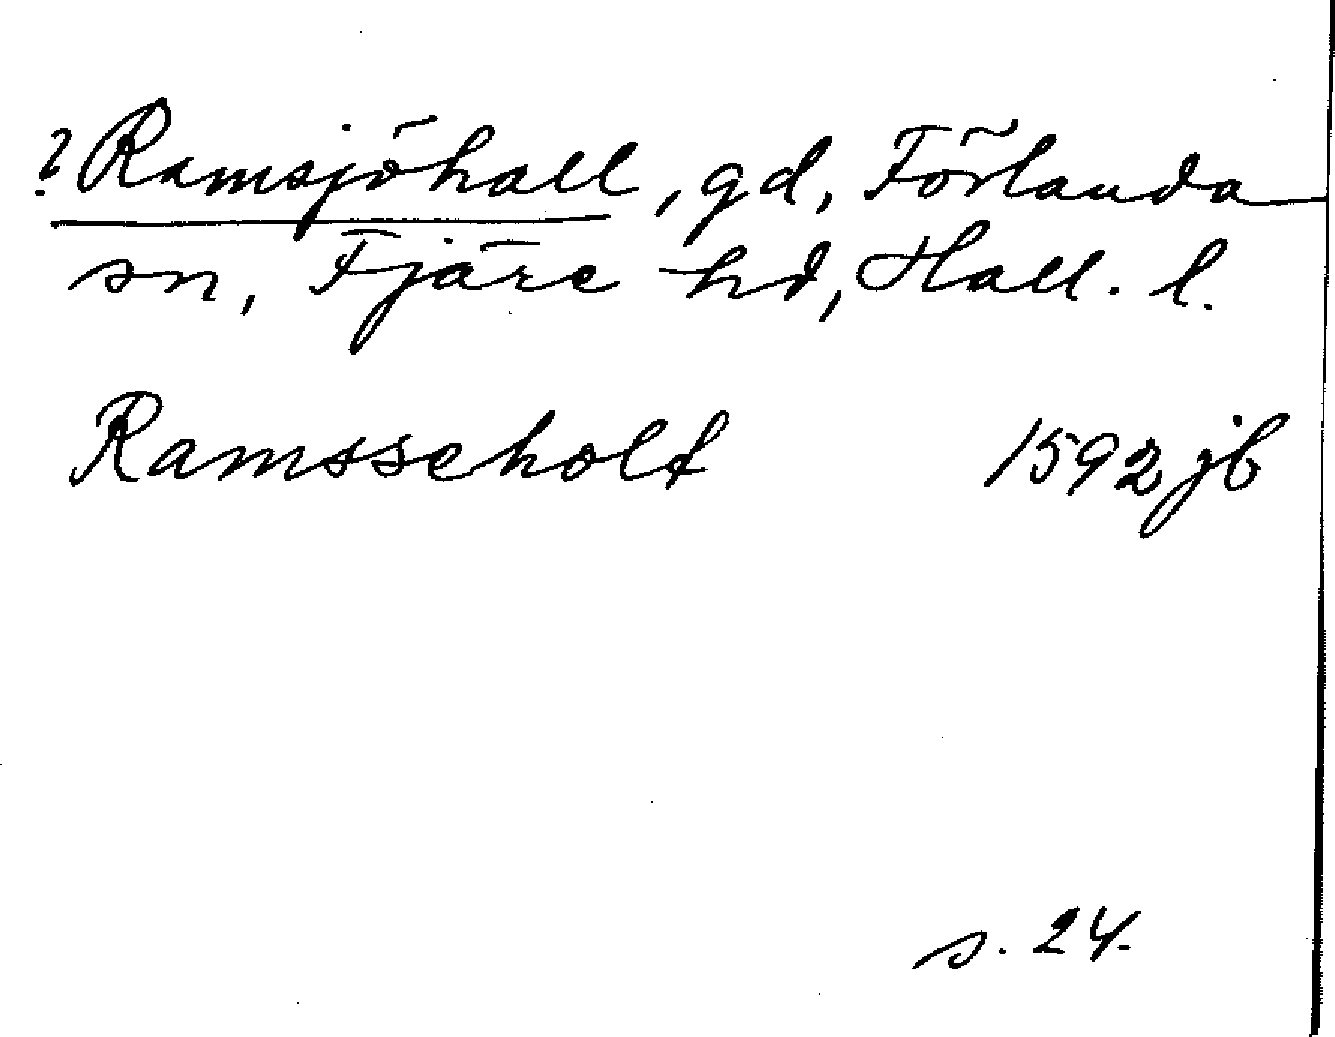 ? Ramsjöhall, gd, Förlanda
sn, Fjäre hd, Hall. l.
Ramsseholt 1592 jb
s. 24.